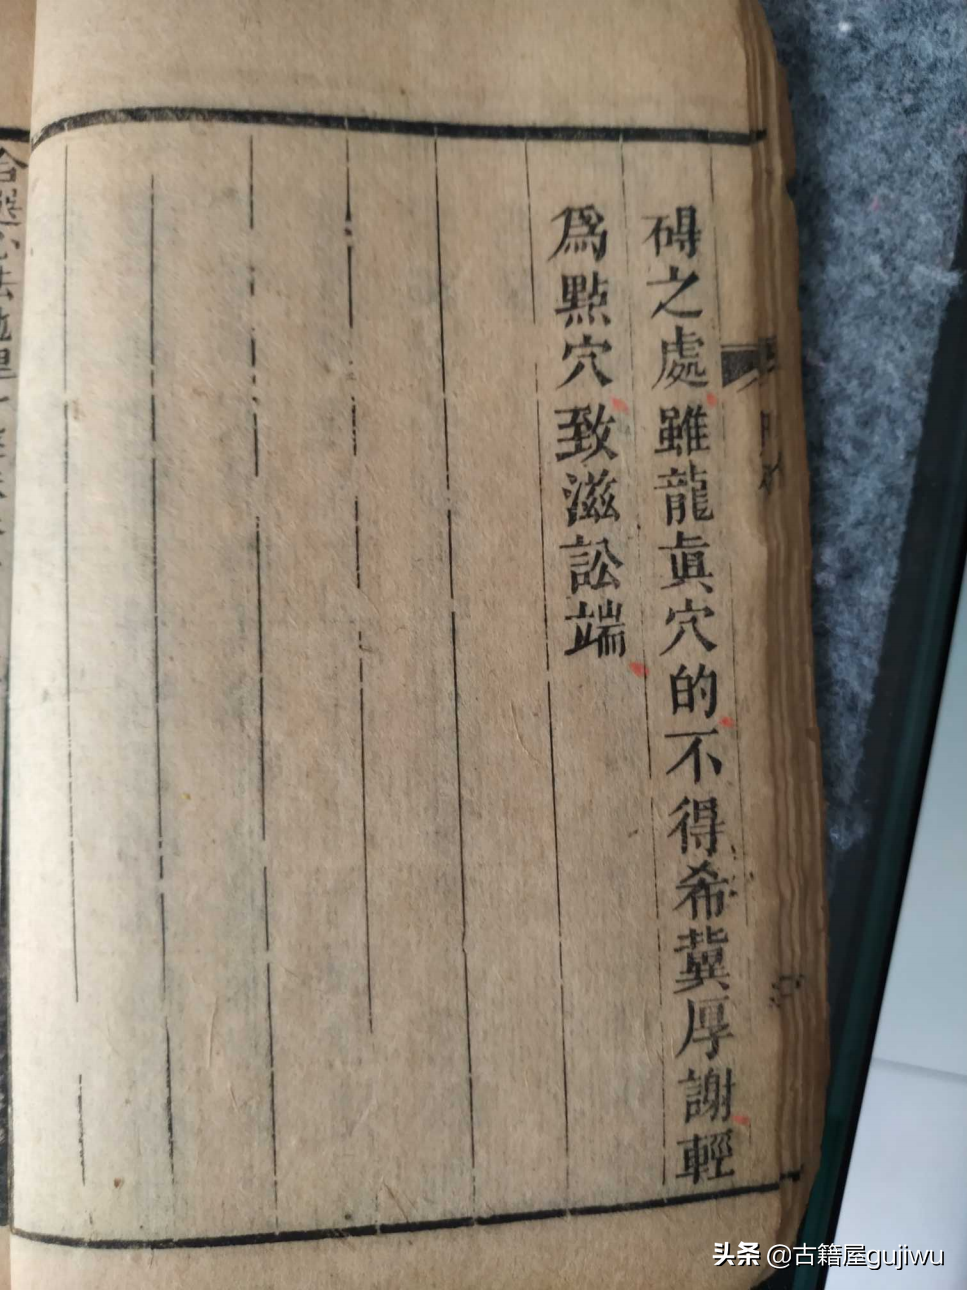 碍之處雖龍眞穴的不得希冀厚謝輕
爲點穴致滋訟端
頭条 @古籍屋gujiwu